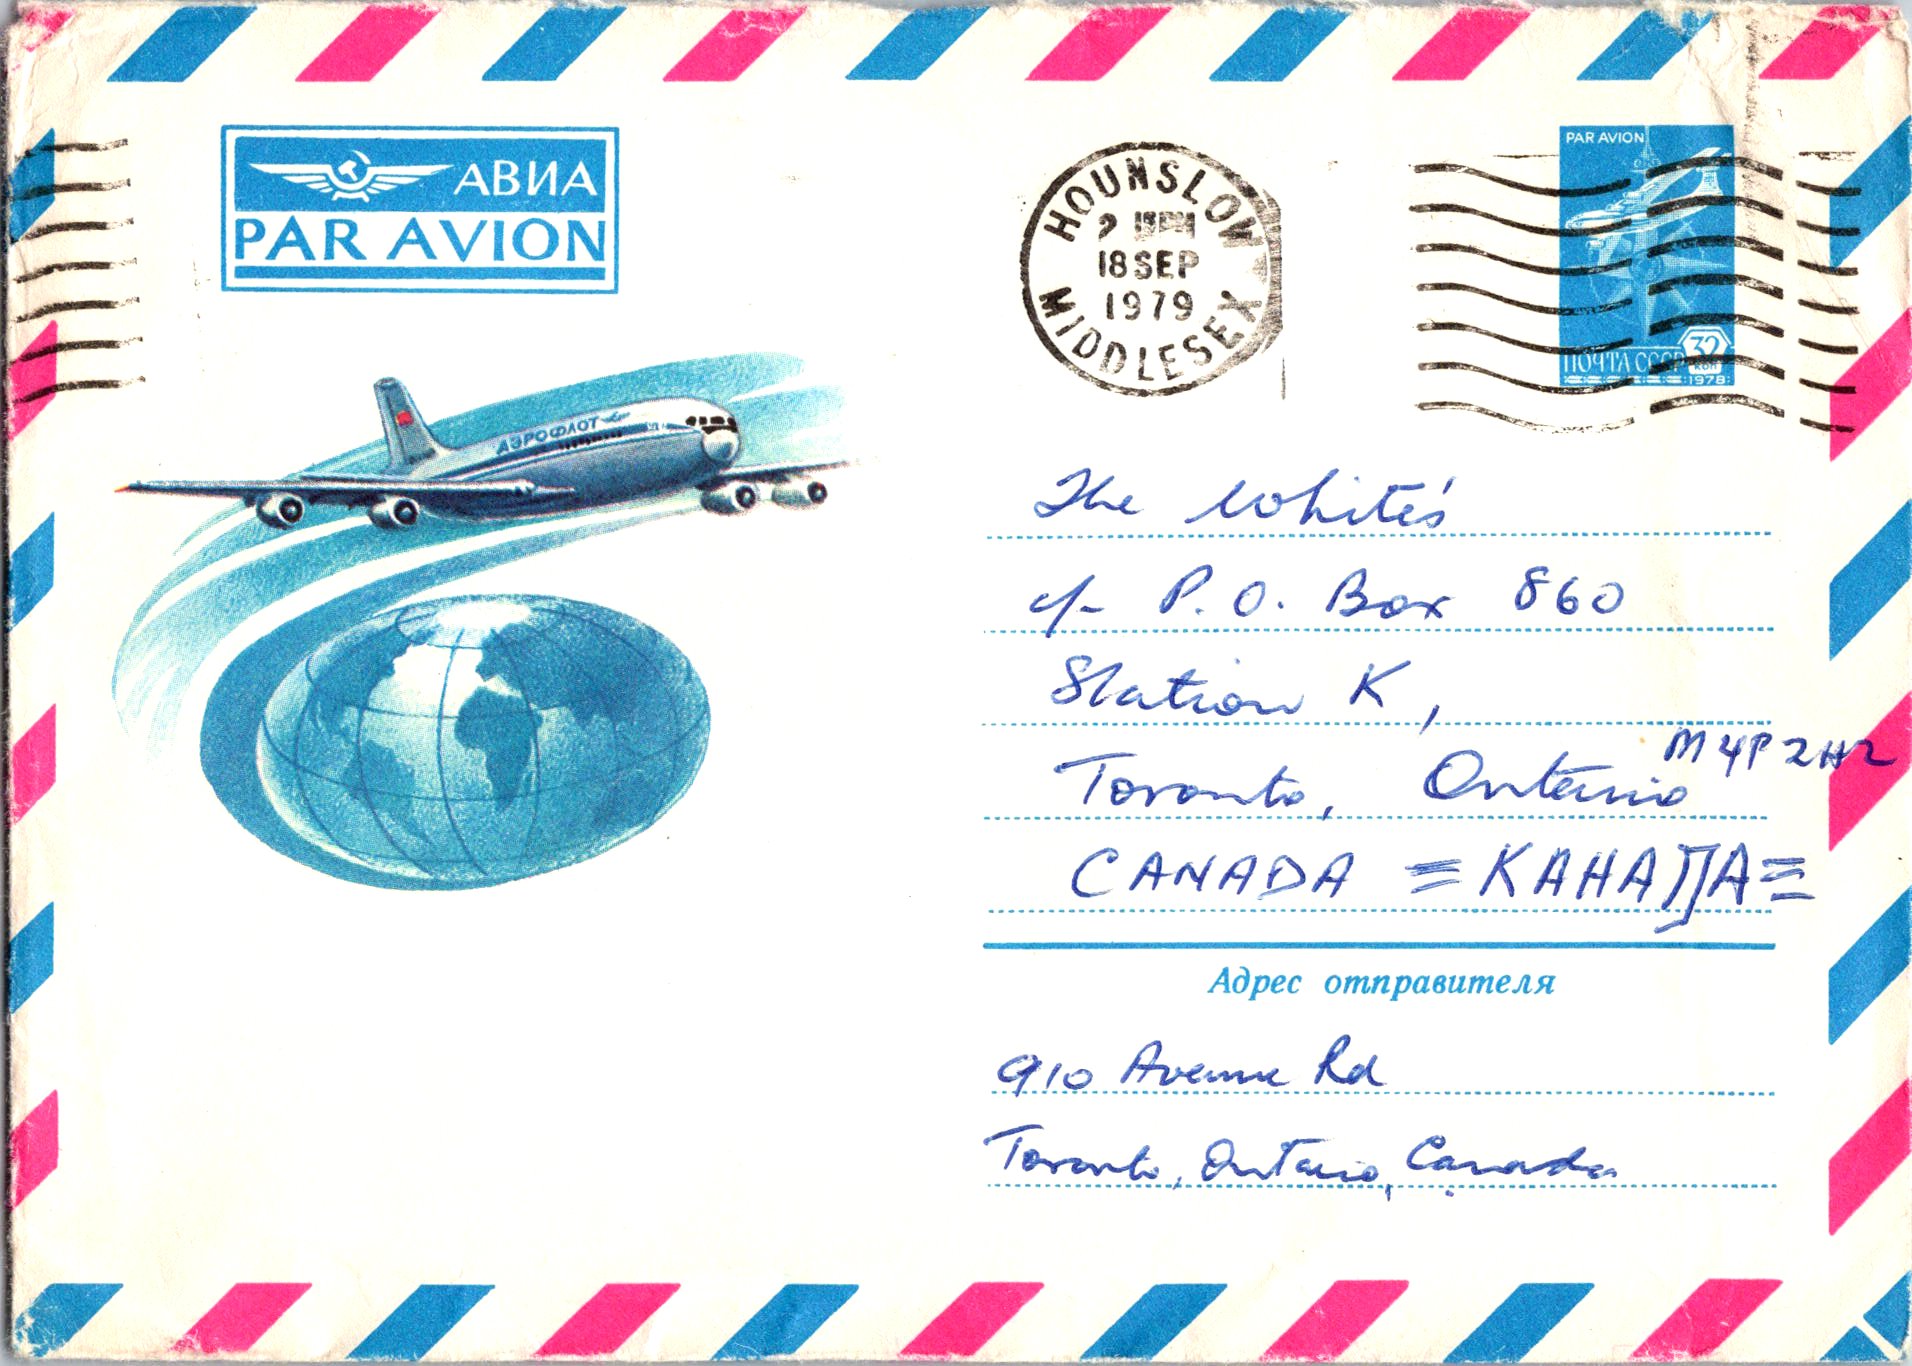 АВИА
PAR AVION
HOUNSLOW
18 SEP
1979
MIDDLESEX
PAR AVION
ПОЧТА СССР
32
КОП
1978
АЭРОФЛОТ
The White's
c/- P.O. Box 860
Station K,
Toronto, Ontario M4P 2H2
CANADA = КАНАДА =
Адрес отправителя
910 Avenue Rd
Toronto, Ontario, Canada